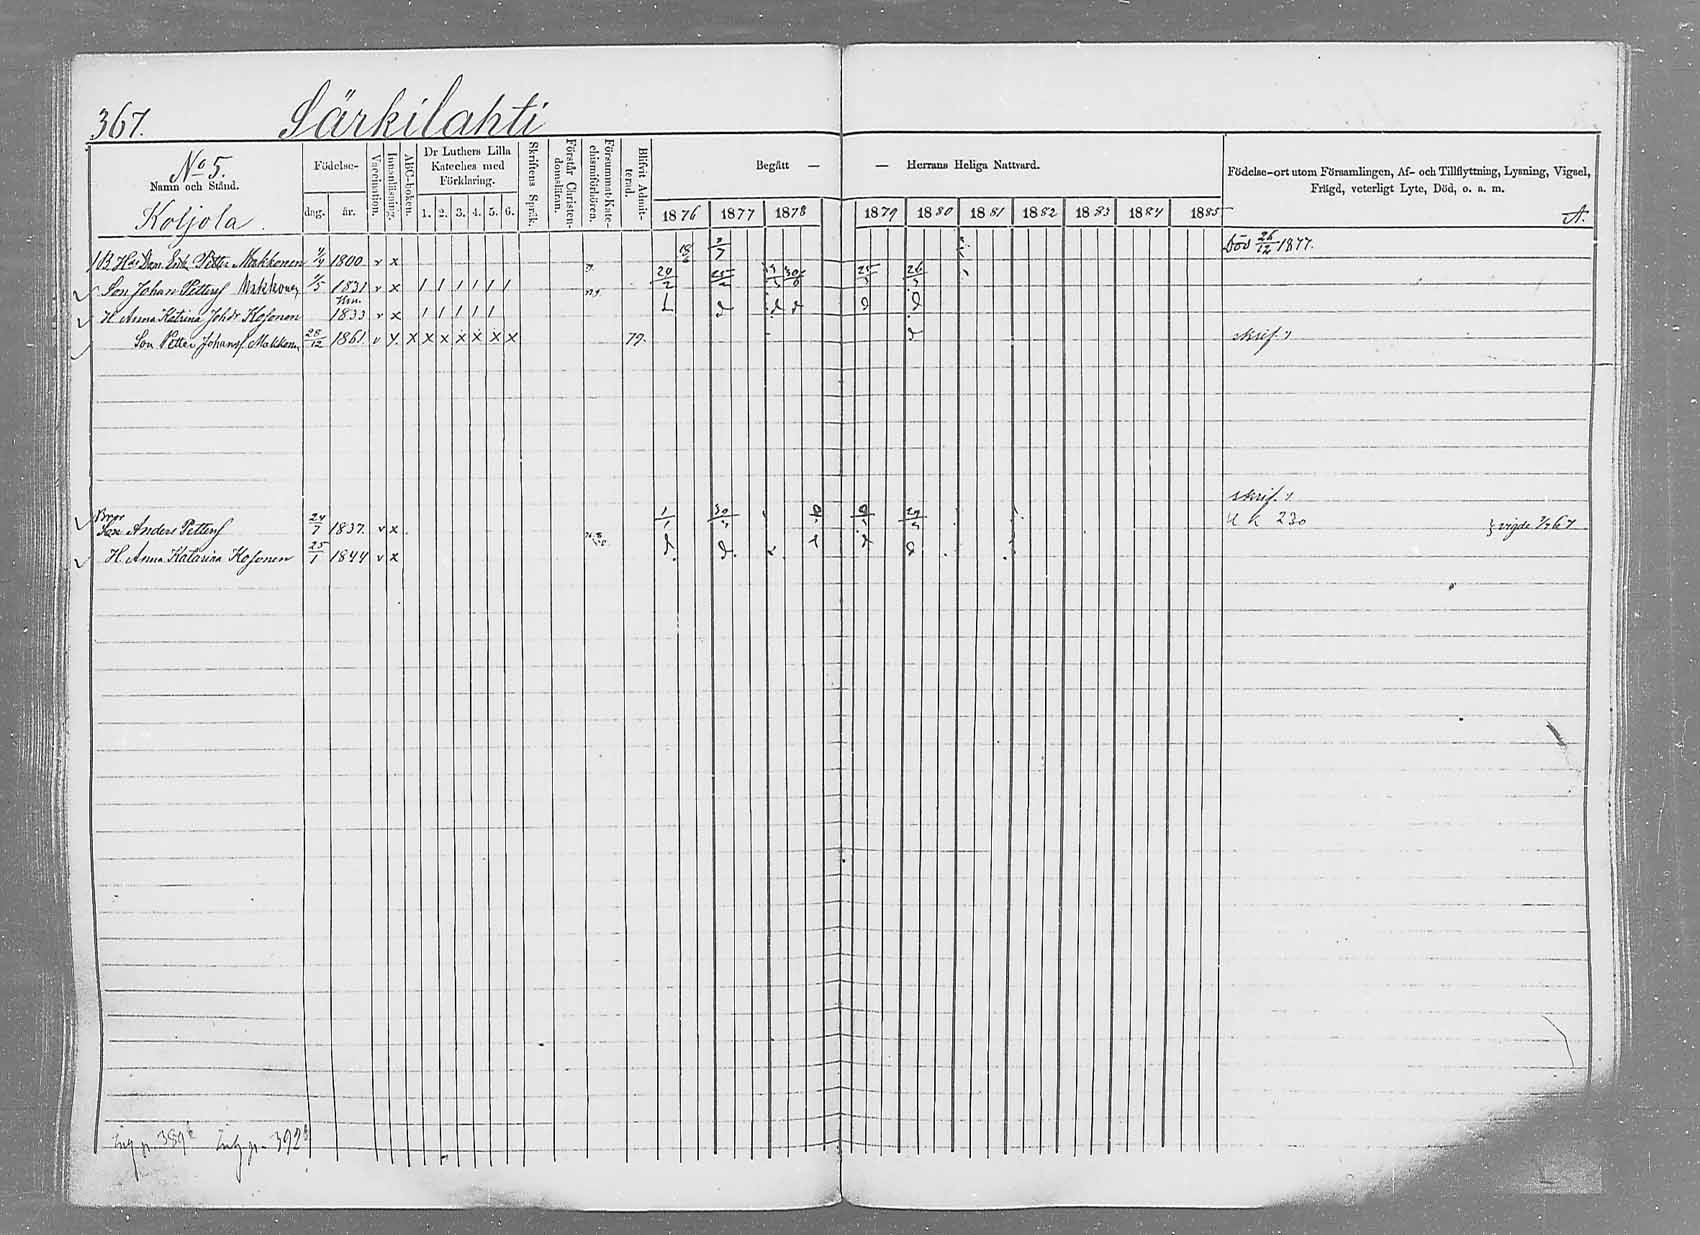 367. Särkilahti
No 5.
Namn och Stånd.
Koljola.
Födelse-
dag. år.
Vaccination.
Innanläsning.
ABC-boken.
Dr Luthers Lilla
Kateches med
Förklaring.
1. 2. 3. 4. 5. 6.
Skriftens Språk.
Förstår Christen-
domsläran.
Försummat Kate-
chismiförhören.
Blifvit Admit-
terad.
Begått — — Herrans Heliga Nattvard.
1876 1877 1878 1879 1880 1881 1882 1883 1884 1885
Födelse-ort utom Församlingen, Af- och Tillflyttning, Lysning, Vigsel,
Frägd, veterligt Lyte, Död, o. a. m.
A.
Petter Makkonen 1800 v x 2/7 död 26/12 1877.
Son Johan Petterss Makkonen 1/5 1831 v x 1 1 1 1 1 1 20/2 25 26
H. Anna Katrina Johdr Kosonen 1833 v x 1 1 1 1 1 d d d d d
Son Petter Johanss Makkonen 28/12 1861 v x x x x x x x x 79. d skrif.
skrif.
Son Anders Petterss 24/7 1837 v x 1/1 30 29 230 vigde 67
H. Anna Katarina Kosonen 25/1 1844 v x d d. d d d
p. 389 p. 392